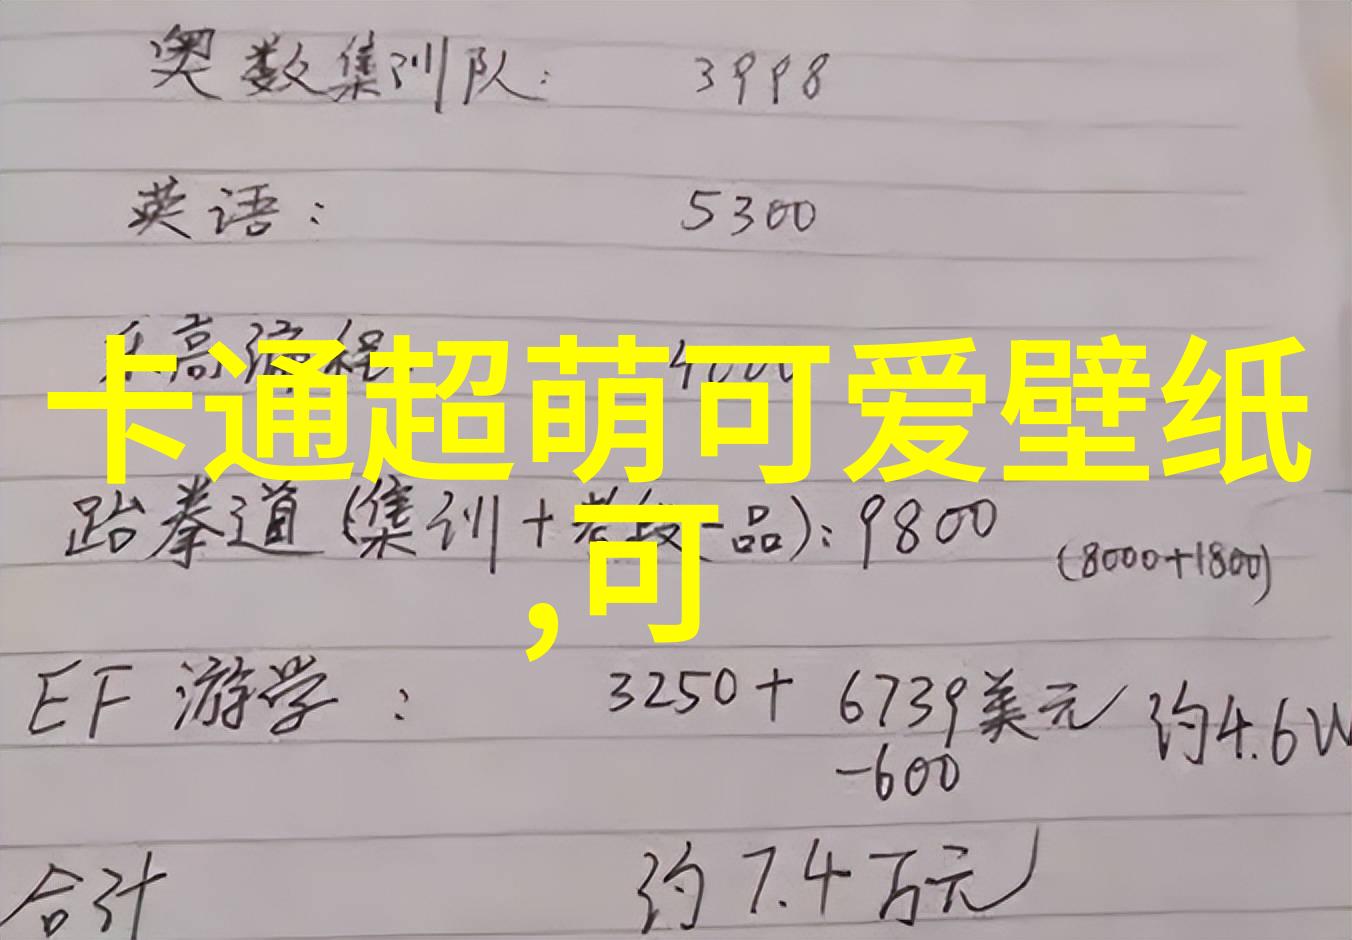 奥数集训队: 3998
英语: 5300
乐高编程: 4000
卡通超萌可爱壁纸
跆拳道(集训+考段一品):9800
(8000+1800)
,可
EF 游学: 3250+ 6739美元 约4.6W
-600
合计 约7.4万元